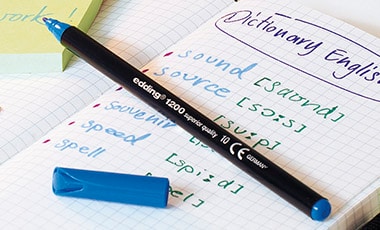 works!
Dictionary English
sound [saʊnd]
source [sɔːs]
souvenir
speed [spiːd]
spell
edding 1200 superior quality 10 CE GERMANY